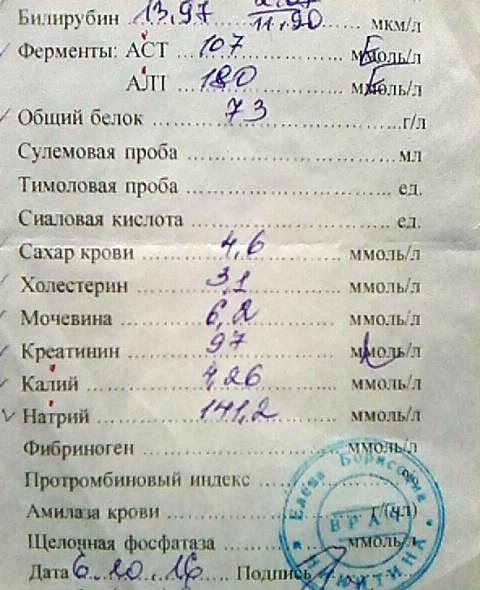 Билирубин 13,97 11,90 мкм/л
Ферменты: АСТ 107 ммоль/л Е
АЛТ 180 ммоль/л Е
Общий белок 73 г/л
Сулемовая проба мл
Тимоловая проба ед.
Сиаловая кислота ед.
Сахар крови 4,6 ммоль/л
Холестерин 3,1 ммоль/л
Мочевина 6,2 ммоль/л
Креатинин 97 ммоль/л
Калий 4,26 ммоль/л
Натрий 141,2 ммоль/л
Фибриноген ммоль/л
Протромбиновый индекс
Амилаза крови г/(чл)
Щелочная фосфатаза ммоль/л
Дата 6.10.16 Подпись
Елена Борисовна
ВРАЧ
НИКИТИНА